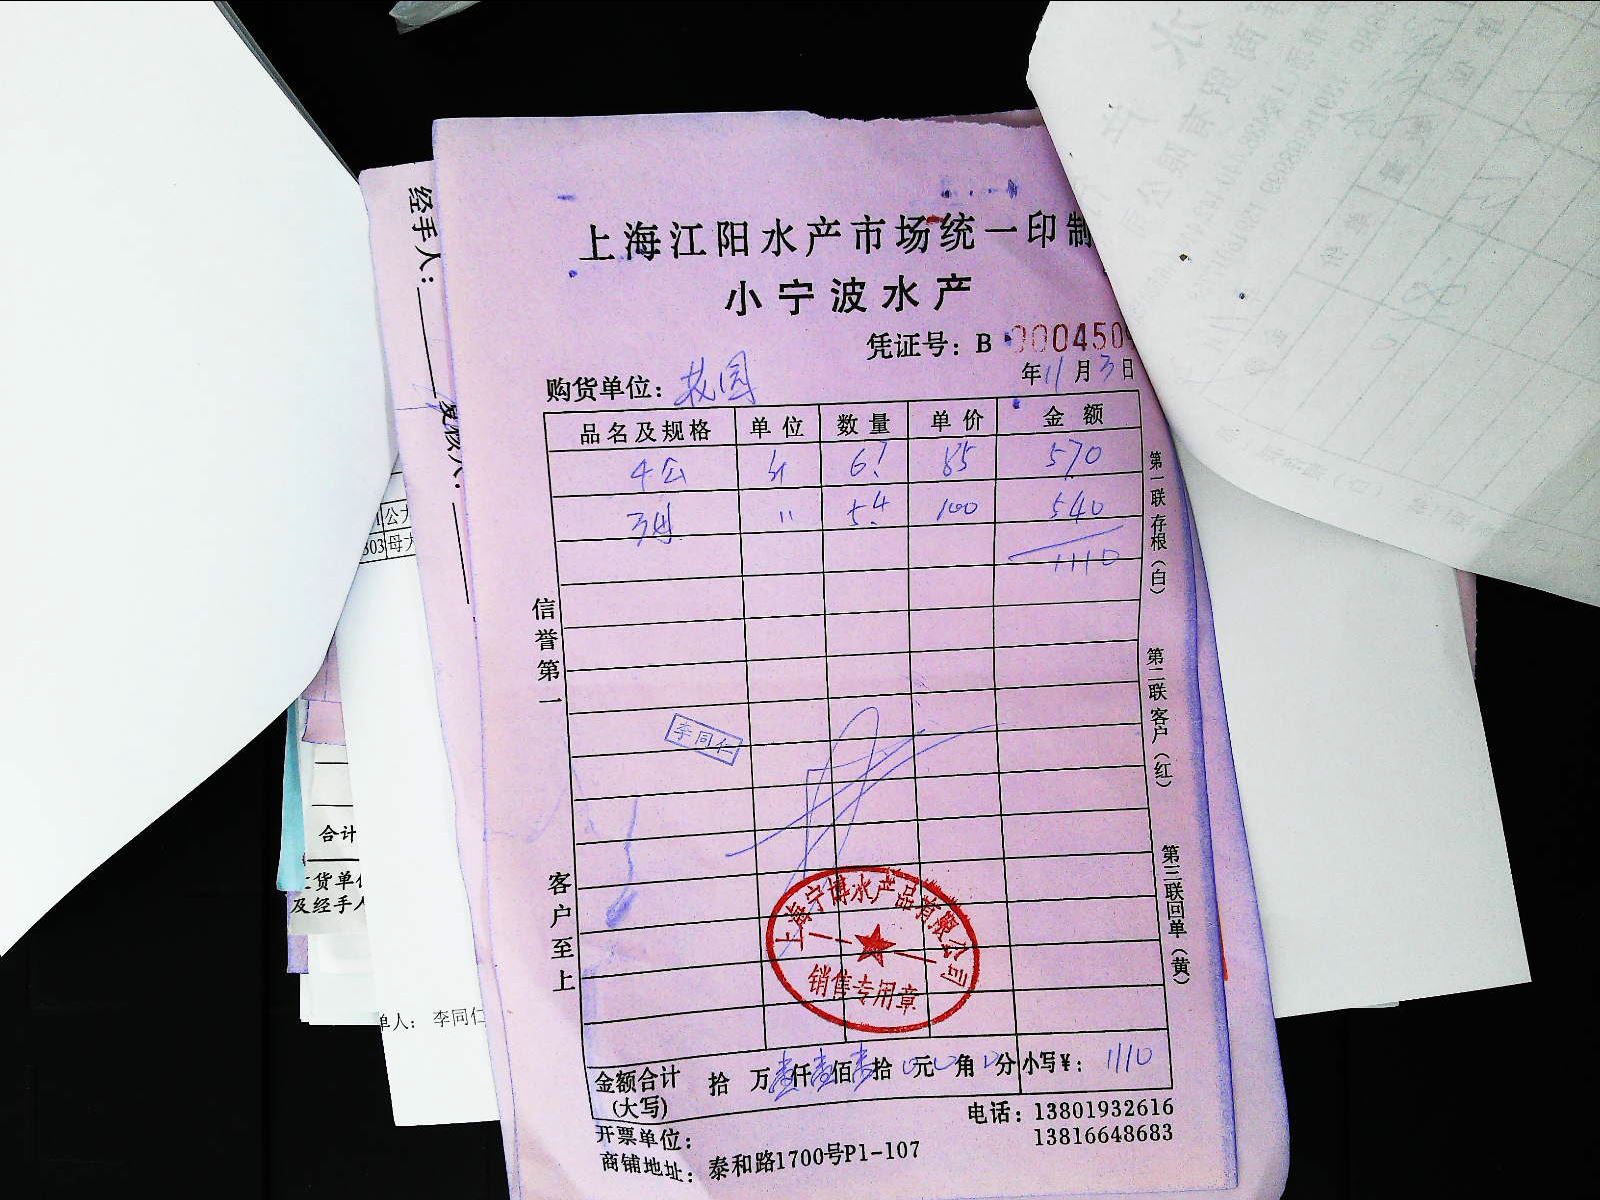 上海江阳水产市场统一印制
小宁波水产
凭证号：B 000450
购货单位：花园 年11月3日
品名及规格 单位 数量 单价 金额
4公 斤 6.7 85 570
3母 〃 5.4 100 540
1110
李同仁
上海宁博水产品有限公司
销售专用章
金额合计(大写) 拾 万壹仟壹佰壹拾0元0角0分 小写¥：1110
开票单位：
电话：13801932616
13816648683
商铺地址：泰和路1700号P1-107
信誉第一
客户至上
第一联 存根（白）
第二联 客户（红）
第三联 回单（黄）
经手人：
复核人：
公
303 母大
合计
货单
及经手人
单人： 李同仁